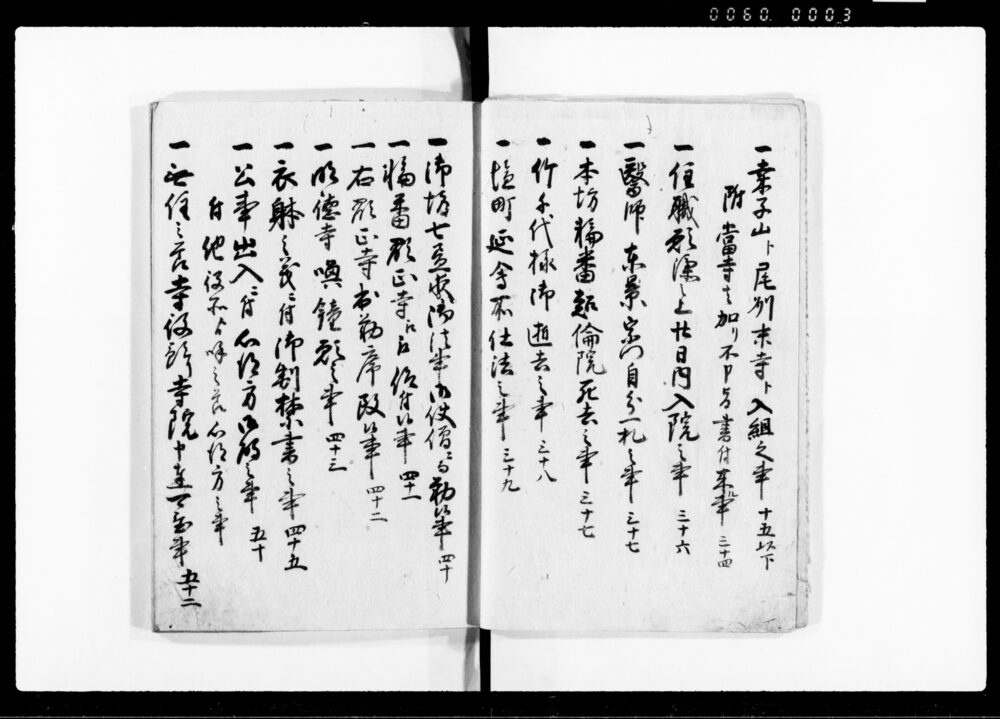 0060 0003
一 桑子山ト尾州末寺ト入組之事 十五以下
附 當寺を加り不申与書付来事 三十四
一 住職願済之上廿日内入院之事 三十六
一 醫師東景宗門自分一札之事 三十七
一 本坊輪番超倫院死去之事 三十七
一 竹千代様御逝去之事 三十八
一 塩町延命 仕法之事 三十九
一 御坊七 御法事 使僧ニ而勤候事 四十
一 輪番願正寺江 付候事 四十一
一 右願正寺 席改候事 四十二
一 明徳寺喚鐘願之事 四十三
一 衣躰之義ニ付御制禁書之事 四十五
一 公事出入ニ付 方 之事 五十
付 他 之節 方之事
一 無住之節寺役 寺院中 事 五十二